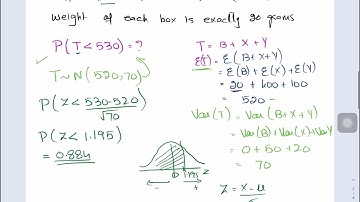 weight of each box is exactly 20 grams
P(T<530) = ?
T ~ N(520,70)
P(Z < 530-520
√70)
P(Z < 1.195)
= 0.884
T = B + X + Y
E(T) = E(B+X+Y)
= E(B) + E(X) + E(Y)
= 20 + 400 + 100
= 520
Var(T) = Var(B+X+Y)
= Var(B)+Var(X)+Var Y
= 0 + 50 + 20
= 70
0 1.195 Z
- +
Z = X-μ